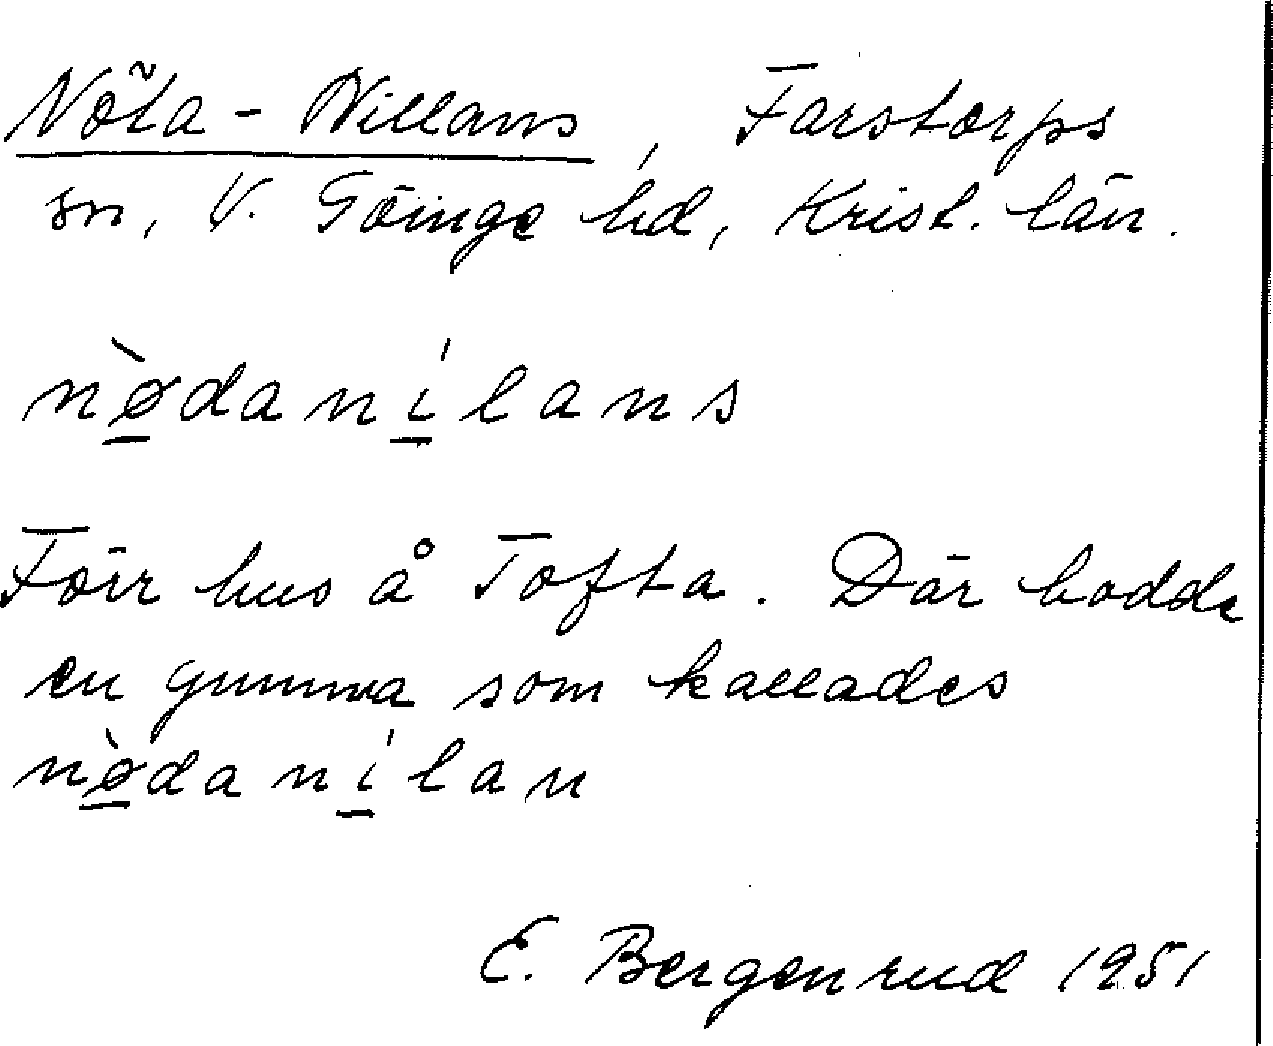 Nöta-Nillans, Farstorps
sn, V. Göinge hd, Krist. län.
nø̀danílans
Förr hus å Tofta. Där bodde
en gumma som kallades
nø̀danílan
E. Bergenrud 1951